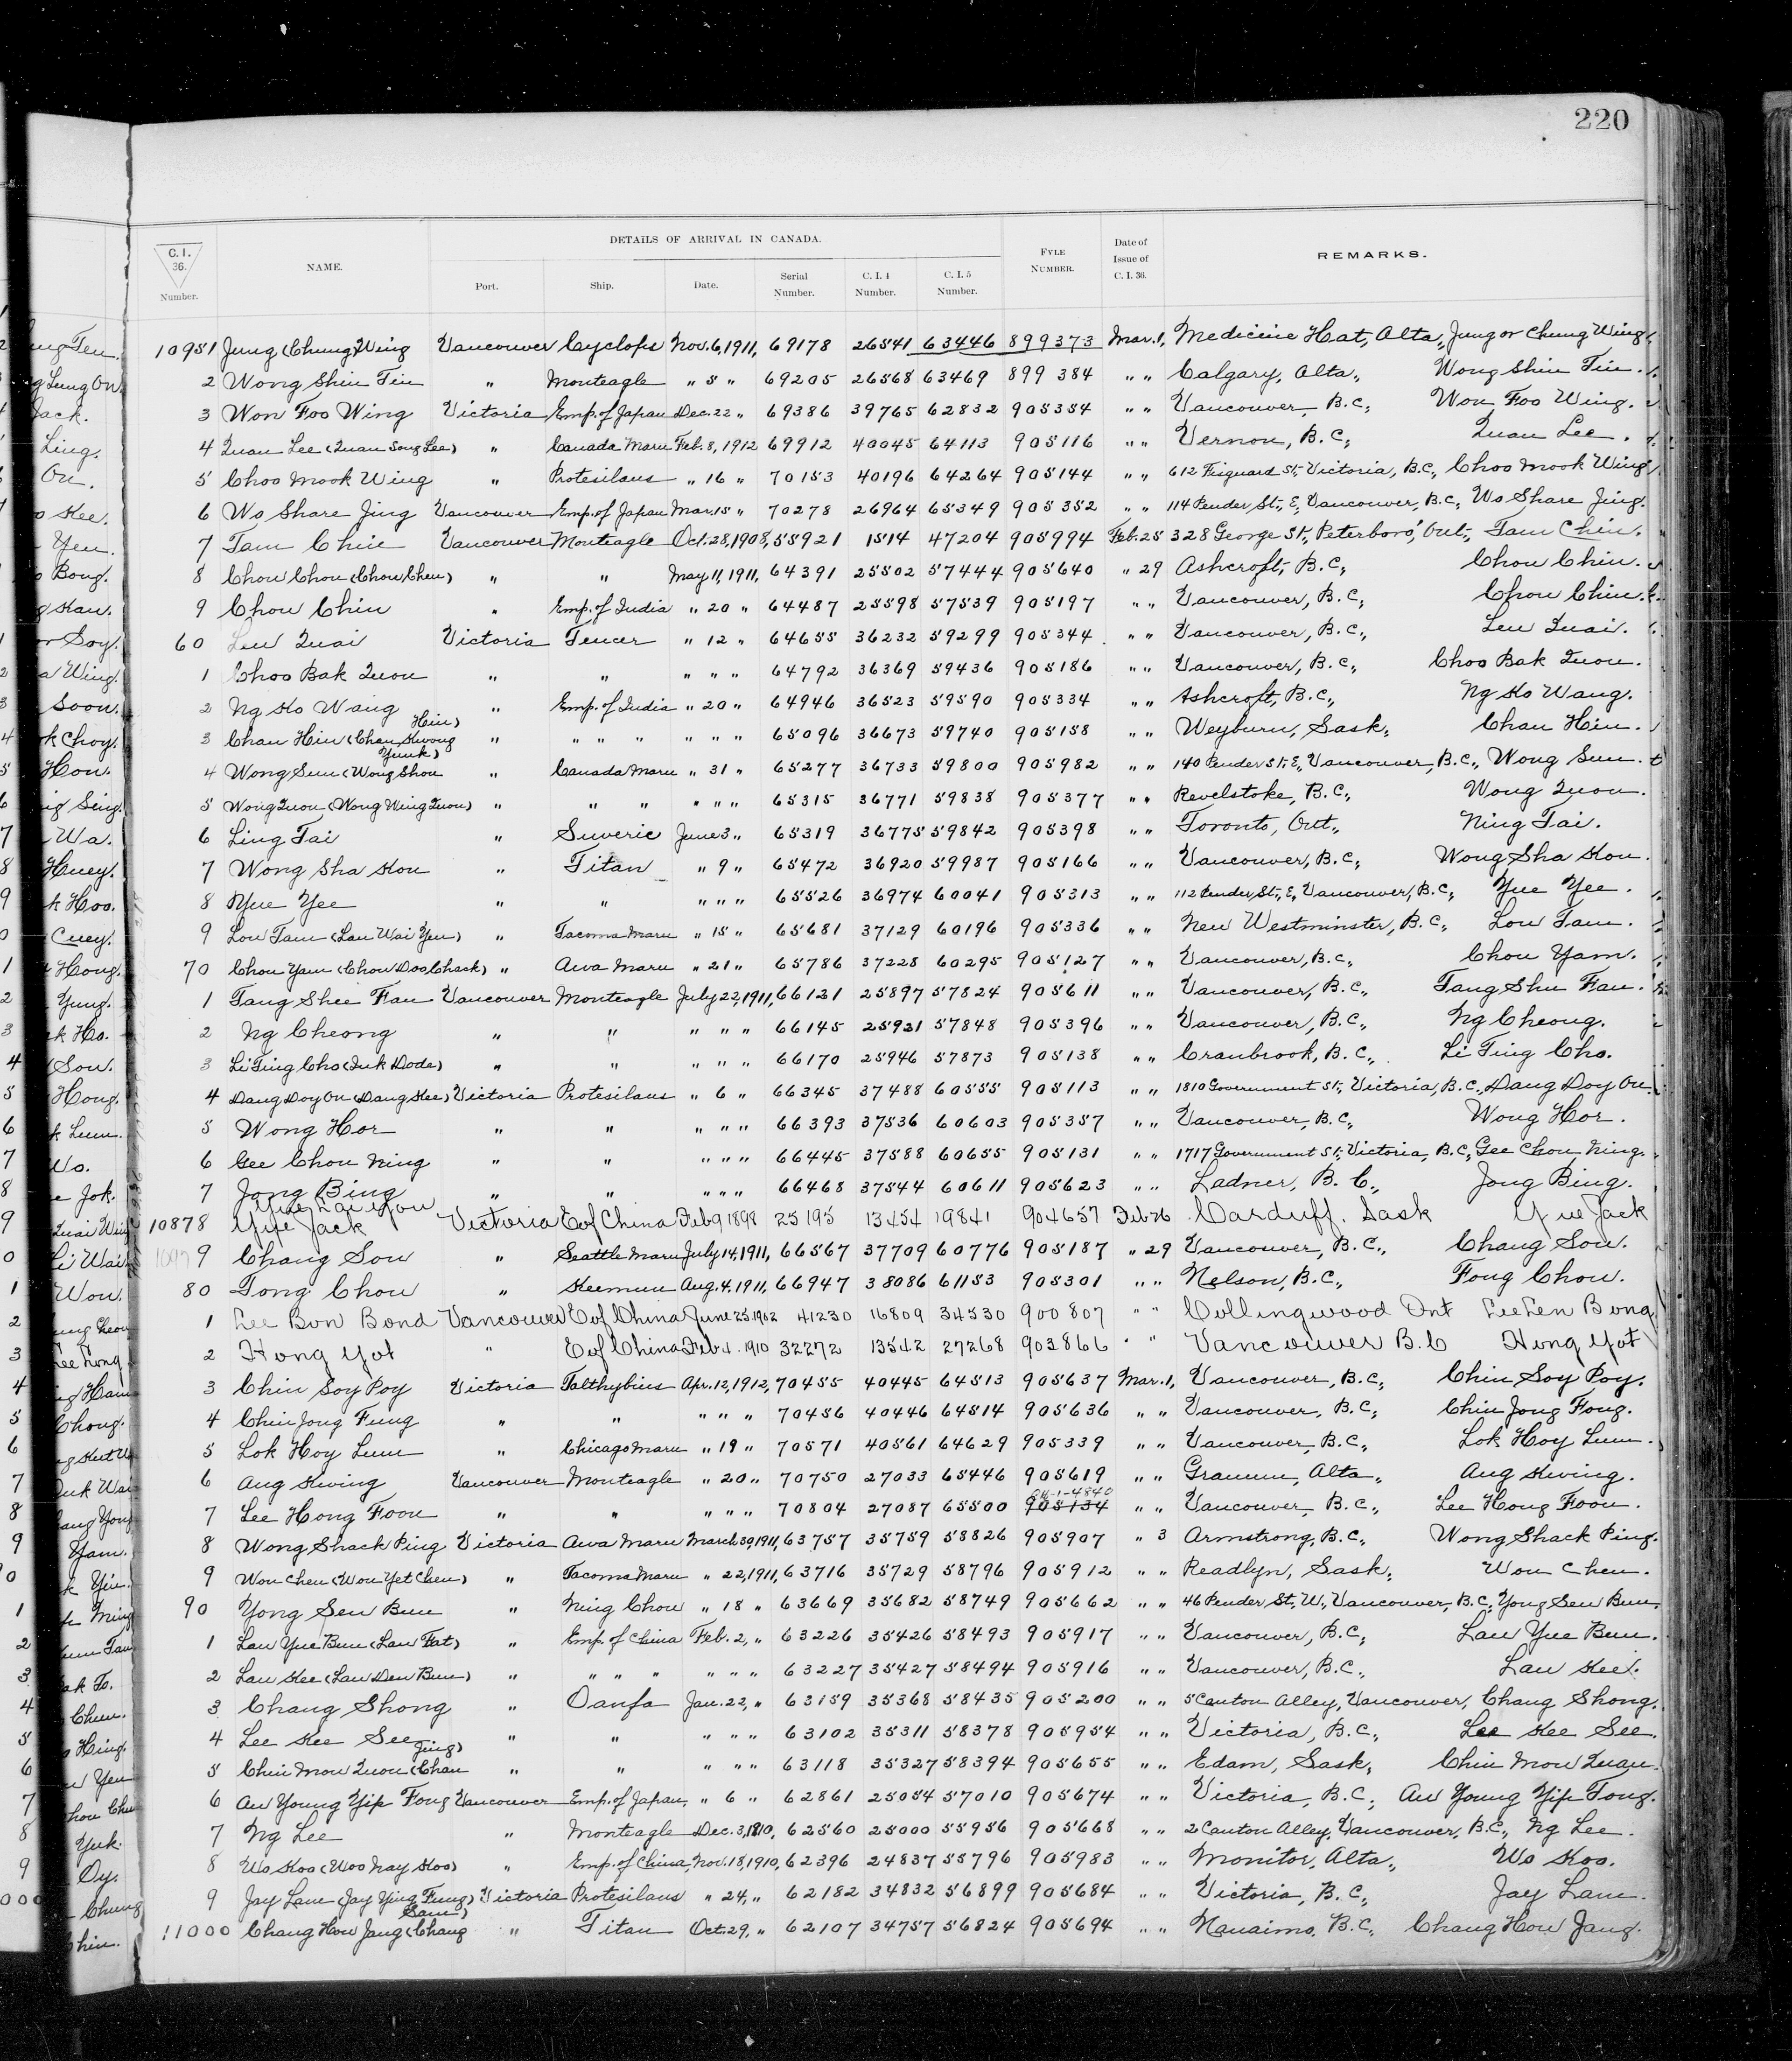 220
DETAILS OF ARRIVAL IN CANADA.
C. I. 36. Number. NAME. Port. Ship. Date. Serial Number. C. I. 4 Number. C. I. 5 Number. FYLE NUMBER. Date of Issue of C. I. 36. REMARKS.
10951 Jung (Chung) Wing Vancouver Cyclops Nov. 6, 1911, 69178 26541 63446 899373 Mar. 1, Medicine Hat, Alta., Jung or Chung Wing.
2 Wong Shin Tin " Monteagle " 5 " 69205 26568 63469 899 384 " " Calgary, Alta., Wong Shin Tin.
3 Won Foo Wing Victoria Emp. of Japan Dec. 22 " 69386 39765 62832 905354 " " Vancouver, B.C., Won Foo Wing.
4 Quan Lee (Quan Song Lee) " Canada Maru Feb. 8, 1912 69912 40045 64113 905116 " " Vernon, B.C., Quan Lee.
5 Choo Mook Wing " Protesilaus " 16 " 70153 40196 64264 905144 " " 612 Fisguard St., Victoria, B.C., Choo Mook Wing.
6 Wo Share Jing Vancouver Emp. of Japan Mar. 15 " 70278 26964 65349 905352 " " 114 Pender St., E., Vancouver, B.C., Wo Share Jing.
7 Tam Chin Vancouver Monteagle Oct. 28, 1908, 55921 1514 47204 905994 Feb. 25 328 George St., Peterboro', Ont., Tam Chin.
8 Chou Chou (Chou Chen) " " May 11, 1911, 64391 25502 57444 905640 " 29 Ashcroft, B.C., Chou Chin.
9 Chou Chin " Emp. of India " 20 " 64487 25598 57539 905197 " " Vancouver, B.C., Chou Chin.
60 Leu Quai Victoria Teucer " 12 " 64655 36232 59299 905344 " " Vancouver, B.C., Leu Quai.
1 Choo Bak Quon " " " " " 64792 36369 59436 905186 " " Vancouver, B.C., Choo Bak Quon.
2 Ng Ko Wang " Emp. of India " 20 " 64946 36523 59590 905334 " " Ashcroft, B.C., Ng Ko Wang.
3 Chan Hin (Chan Kwong Hin) " " " " " " " 65096 36673 59740 905158 " " Weyburn, Sask., Chan Hin.
4 Wong Sun (Wong Shou Yunk) " Canada Maru " 31 " 65277 36733 59800 905982 " " 140 Pender St., E., Vancouver, B.C., Wong Sun.
5 Wong Quon (Wong Wing Quon) " " " " " " 65315 36771 59838 905377 " " Revelstoke, B.C., Wong Quon.
6 Ling Tai " Suveric June 3 " 65319 36775 59842 905398 " " Toronto, Ont., Ning Tai.
7 Wong Sha Kou " Titan " 9 " 65472 36920 59987 905166 " " Vancouver, B.C., Wong Sha Kou.
8 Yue Yee " " " " " 65526 36974 60041 905313 " " 112 Pender St., E., Vancouver, B.C., Yue Yee.
9 Lou Tam (Lau Wai Yen) " Tacoma Maru " 15 " 65681 37129 60196 905336 " " New Westminster, B.C., Lou Tam.
70 Chou Yam (Chou Doo Chack) " Awa Maru " 21 " 65786 37228 60295 905127 " " Vancouver, B.C., Chou Yam.
1 Tang Shee Fan Vancouver Monteagle July 22, 1911, 66121 25897 57824 905611 " " Vancouver, B.C., Tang Shu Fan.
2 Ng Cheong " " " " " 66145 25921 57848 905396 " " Vancouver, B.C., Ng Cheong.
3 Li Ting Cho (Juk Dode) " " " " " 66170 25946 57873 905138 " " Cranbrook, B.C., Li Ting Cho.
4 Dang Doy On (Dang Kee) Victoria Protesilaus " 6 " 66345 37488 60555 905113 " " 1810 Government St., Victoria, B.C., Dang Doy On.
5 Wong Hor " " " " " 66393 37536 60603 905357 " " Vancouver, B.C., Wong Hor.
6 Gee Chou Ning " " " " " 66445 37588 60655 905131 " " 1717 Government St., Victoria, B.C., Gee Chou Ning.
7 Jong Bing " " " " " 66468 37544 60611 905623 " " Ladner, B.C., Jong Bing.
Yue Lai You
10878 Yue Jack Victoria E of China Feb 9 1898 25195 13454 19841 904657 Feb 26 Carduff. Sask Yue Jack
9 Chang Sou " Seattle Maru July 14, 1911, 66567 37709 60776 905187 " 29 Vancouver, B.C., Chang Sou.
80 Fong Chou " Keemun Aug. 4, 1911, 66947 38086 61153 905301 " " Nelson, B.C., Fong Chou.
1 Lee Bon Bond Vancouver E of China June 25 1902 41230 16809 34530 900 807 " " Collingwood Ont Lee Len Bong
2 Hong Yot " E of China Feb 4. 1910 32272 13542 27268 903866 " " Vancouver B.C Hong Yot
3 Chin Soy Poy Victoria Talthybius Apr. 12, 1912, 70455 40445 64513 905637 Mar. 1, Vancouver, B.C., Chin Soy Poy.
4 Chin Jong Fung " " " " " 70456 40446 64514 905636 " " Vancouver, B.C., Chin Jong Fong.
5 Lok Hoy Lum " Chicago Maru " 19 " 70571 40561 64629 905339 " " Vancouver, B.C., Lok Hoy Lum.
6 Ang Kwing Vancouver Monteagle " 20 " 70750 27033 65446 905619 " " Gramm, Alta., Ang Kwing.
7 Lee Hong Foon " " " " " 70804 27087 65500 905134 " " Vancouver, B.C., Lee Hong Foon.
8 Wong Shack Ping Victoria Awa Maru March 30, 1911, 63757 35759 58826 905907 " 3 Armstrong, B.C., Wong Shack Ping.
9 Won Chen (Won Yet Chen) " Tacoma Maru " 22, 1911, 63716 35729 58796 905912 " " Readlyn, Sask., Won Chen.
90 Yong Sen Bun " Ning Chow " 18 " 63669 35682 58749 905662 " " 46 Pender St., W., Vancouver, B.C., Yong Sen Bun.
1 Lau Yue Bun (Lau Fat) " Emp. of China Feb. 2, " 63226 35426 58493 905917 " " Vancouver, B.C., Lau Yue Bun.
2 Lau Kee (Lau Den Bun) " " " " " " " 63227 35427 58494 905916 " " Vancouver, B.C., Lau Kee.
3 Chang Shong " Oanfa Jan. 22, " 63159 35368 58435 905200 " " 5 Canton Alley, Vancouver, Chang Shong.
4 Lee Kee See " " " " " 63102 35311 58378 905954 " " Victoria, B.C., Lee Kee See.
5 Chin Mou Quon (Chan Jing) " " " " " 63118 35327 58394 905655 " " Edam, Sask., Chin Mou Quan.
6 Au Young Yip Fong Vancouver Emp. of Japan, " 6 " 62861 25054 57010 905674 " " Victoria, B.C., Au Young Yip Fong.
7 Ng Lee " Monteagle Dec. 3, 1910, 62560 25000 55956 905668 " " 2 Canton Alley, Vancouver, B.C., Ng Lee.
8 Wo Koo (Woo Nay Koo) " Emp. of China, Nov. 18, 1910, 62396 24837 55796 905983 " " Monitor, Alta., Wo Koo.
9 Jay Lam (Jay Ying Fung) Victoria Protesilaus " 24, " 62182 34832 56899 905684 " " Victoria, B.C., Jay Lam.
11000 Chang Hou Jang (Chang Sam) " Titan Oct. 29, " 62107 34757 56824 905694 " " Nanaimo, B.C., Chang Hou Jang.